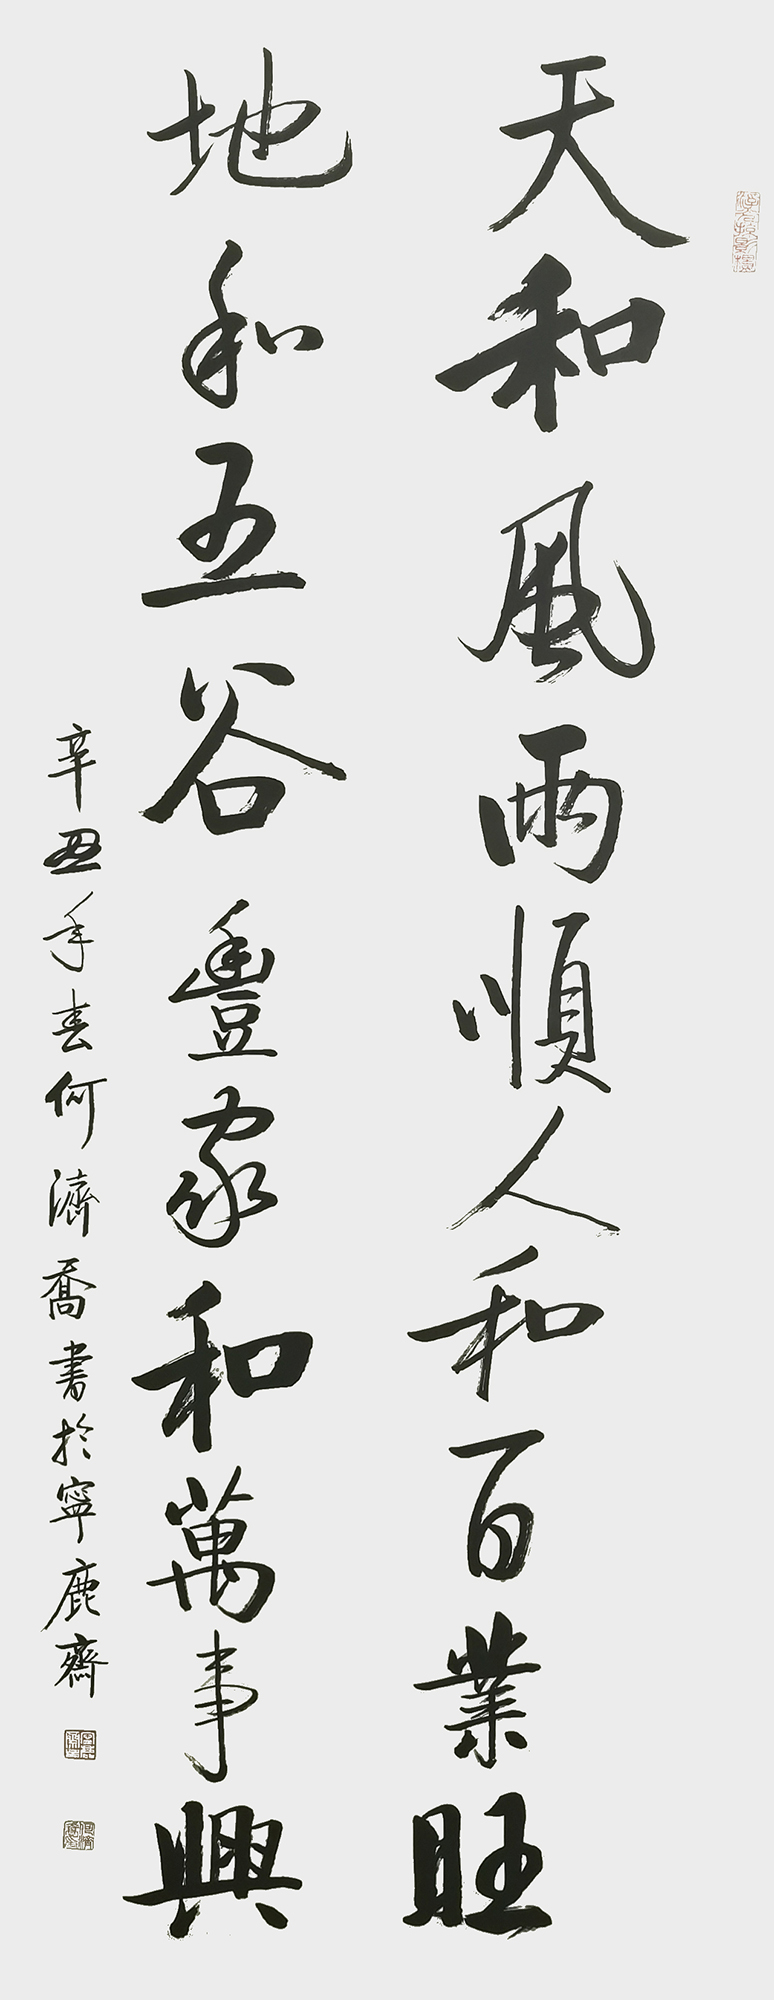 天和風雨順人和百業旺
地和五谷豐家和萬事興
辛丑年春何濟喬書於寧鹿齋